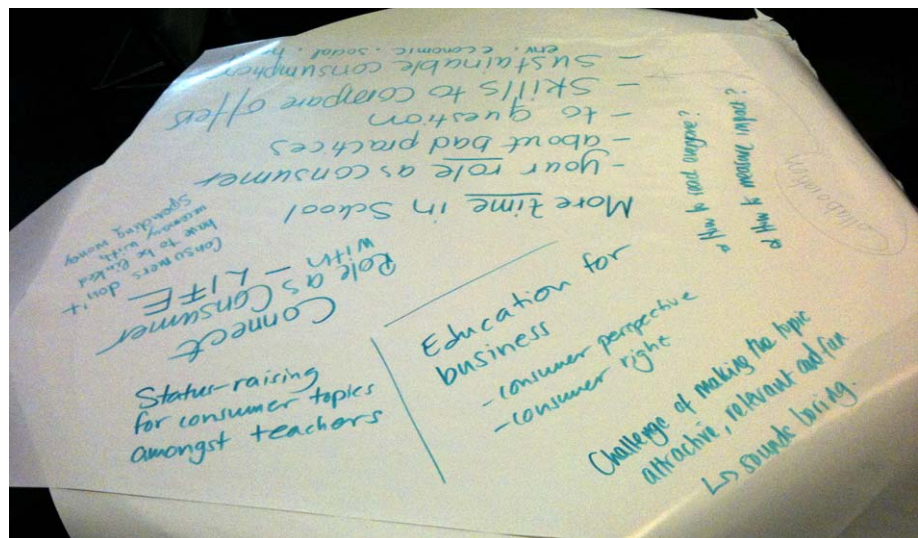 More time in School
- your role as consumer
- about bad practices
- to question
- Skills to compare offers
- Sustainable consumption
env. economic. social.
Connect
Role as Consumer
with - LIFE
Consumers don't
have to be linked
necessary with
Spending money
Status-raising
for consumer topics
amongst teachers
Education for
business
- consumer perspective
- consumer right
Challenge of making the topic
attractive, relevant and fun
↳ sounds boring.
How to reach
How to measure impact?